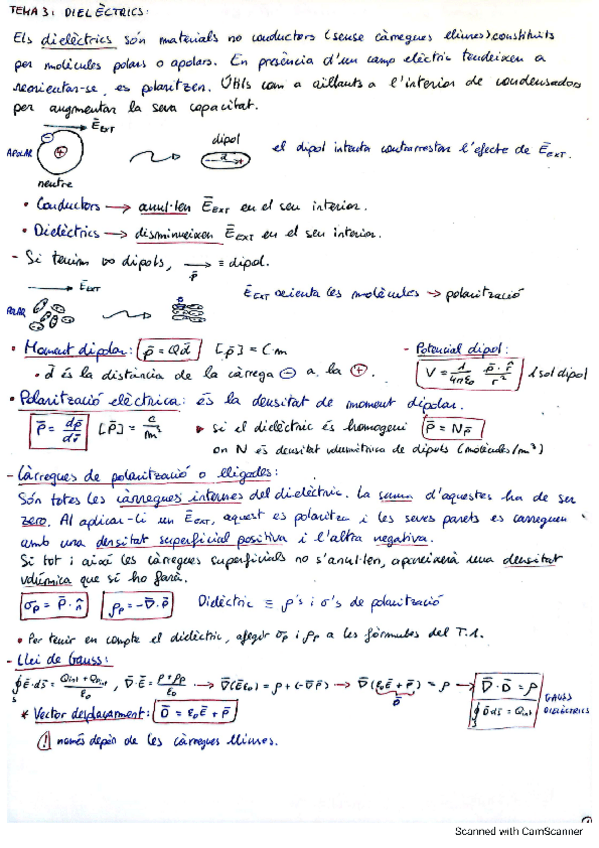 TEMA 3: DIELÈCTRICS:
Els dielèctrics són materials no conductors (sense càrregues lliures) constituïts
per molècules polars o apolars. En presència d'un camp elèctric tendeixen a
reorientar-se, es polaritzen. Útils com a aïllants a l'interior de condensadors
per augmentar la seva capacitat.
E̅EXT
APOLAR
dipol
d
el dipol intenta contrarrestar l'efecte de E̅EXT.
neutre
• Conductors → anul·len E̅EXT en el seu interior.
• Dielèctrics → disminueixen E̅EXT en el seu interior.
- Si tenim ∞ dipols, → ≡ dipol.
p̅
E̅EXT
POLAR
E̅EXT orienta les molècules → polarització
• Moment dipolar: p̅ = Qd̅ [p̅] = C m
- Potencial dipol:
V = 1/4πε₀ p̅·r̂/r² 1 sol dipol
• d̅ és la distància de la càrrega ⊖ a la ⊕.
• Polarització elèctrica: és la densitat de moment dipolar.
P̅ = dp̅/dτ̅ [P̅] = C/m²
▸ si el dielèctric és homogeni P̅ = Np̅
on N és densitat volumètrica de dipols (molècules/m³)
- Càrregues de polarització o lligades:
Són totes les càrregues internes del dielèctric. La suma d'aquestes ha de ser
zero. Al aplicar-li un E̅EXT, aquest es polaritza i les seves parets es carreguen
amb una densitat superficial positiva i l'altra negativa.
Si tot i això les càrregues superficials no s'anul·len, apareixerà una densitat
volúmica que si ho farà.
σp = P̅·n̂ ρp = -∇̅·P̅ Dielèctric ≡ ρ's i σ's de polarització
• Per tenir en compte el dielèctric, afegir σp i ρp a les fórmules del T.1.
- Llei de Gauss:
∮s E̅·ds̅ = (Qint + Qpint)/ε₀, ∇̅·E̅ = (ρ + ρp)/ε₀ → ∇̅(E̅ε₀) = ρ + (-∇̅P̅) → ∇̅(ε₀E̅ + P̅) = ρ → ∇̅·D̅ = ρ
D̅
∮s D̅ds̅ = Qint
GAUSS
DIELÈCTRICS
* Vector desplaçament: D̅ = ε₀E̅ + P̅
! només depèn de les càrregues lliures.
1
Scanned with CamScanner